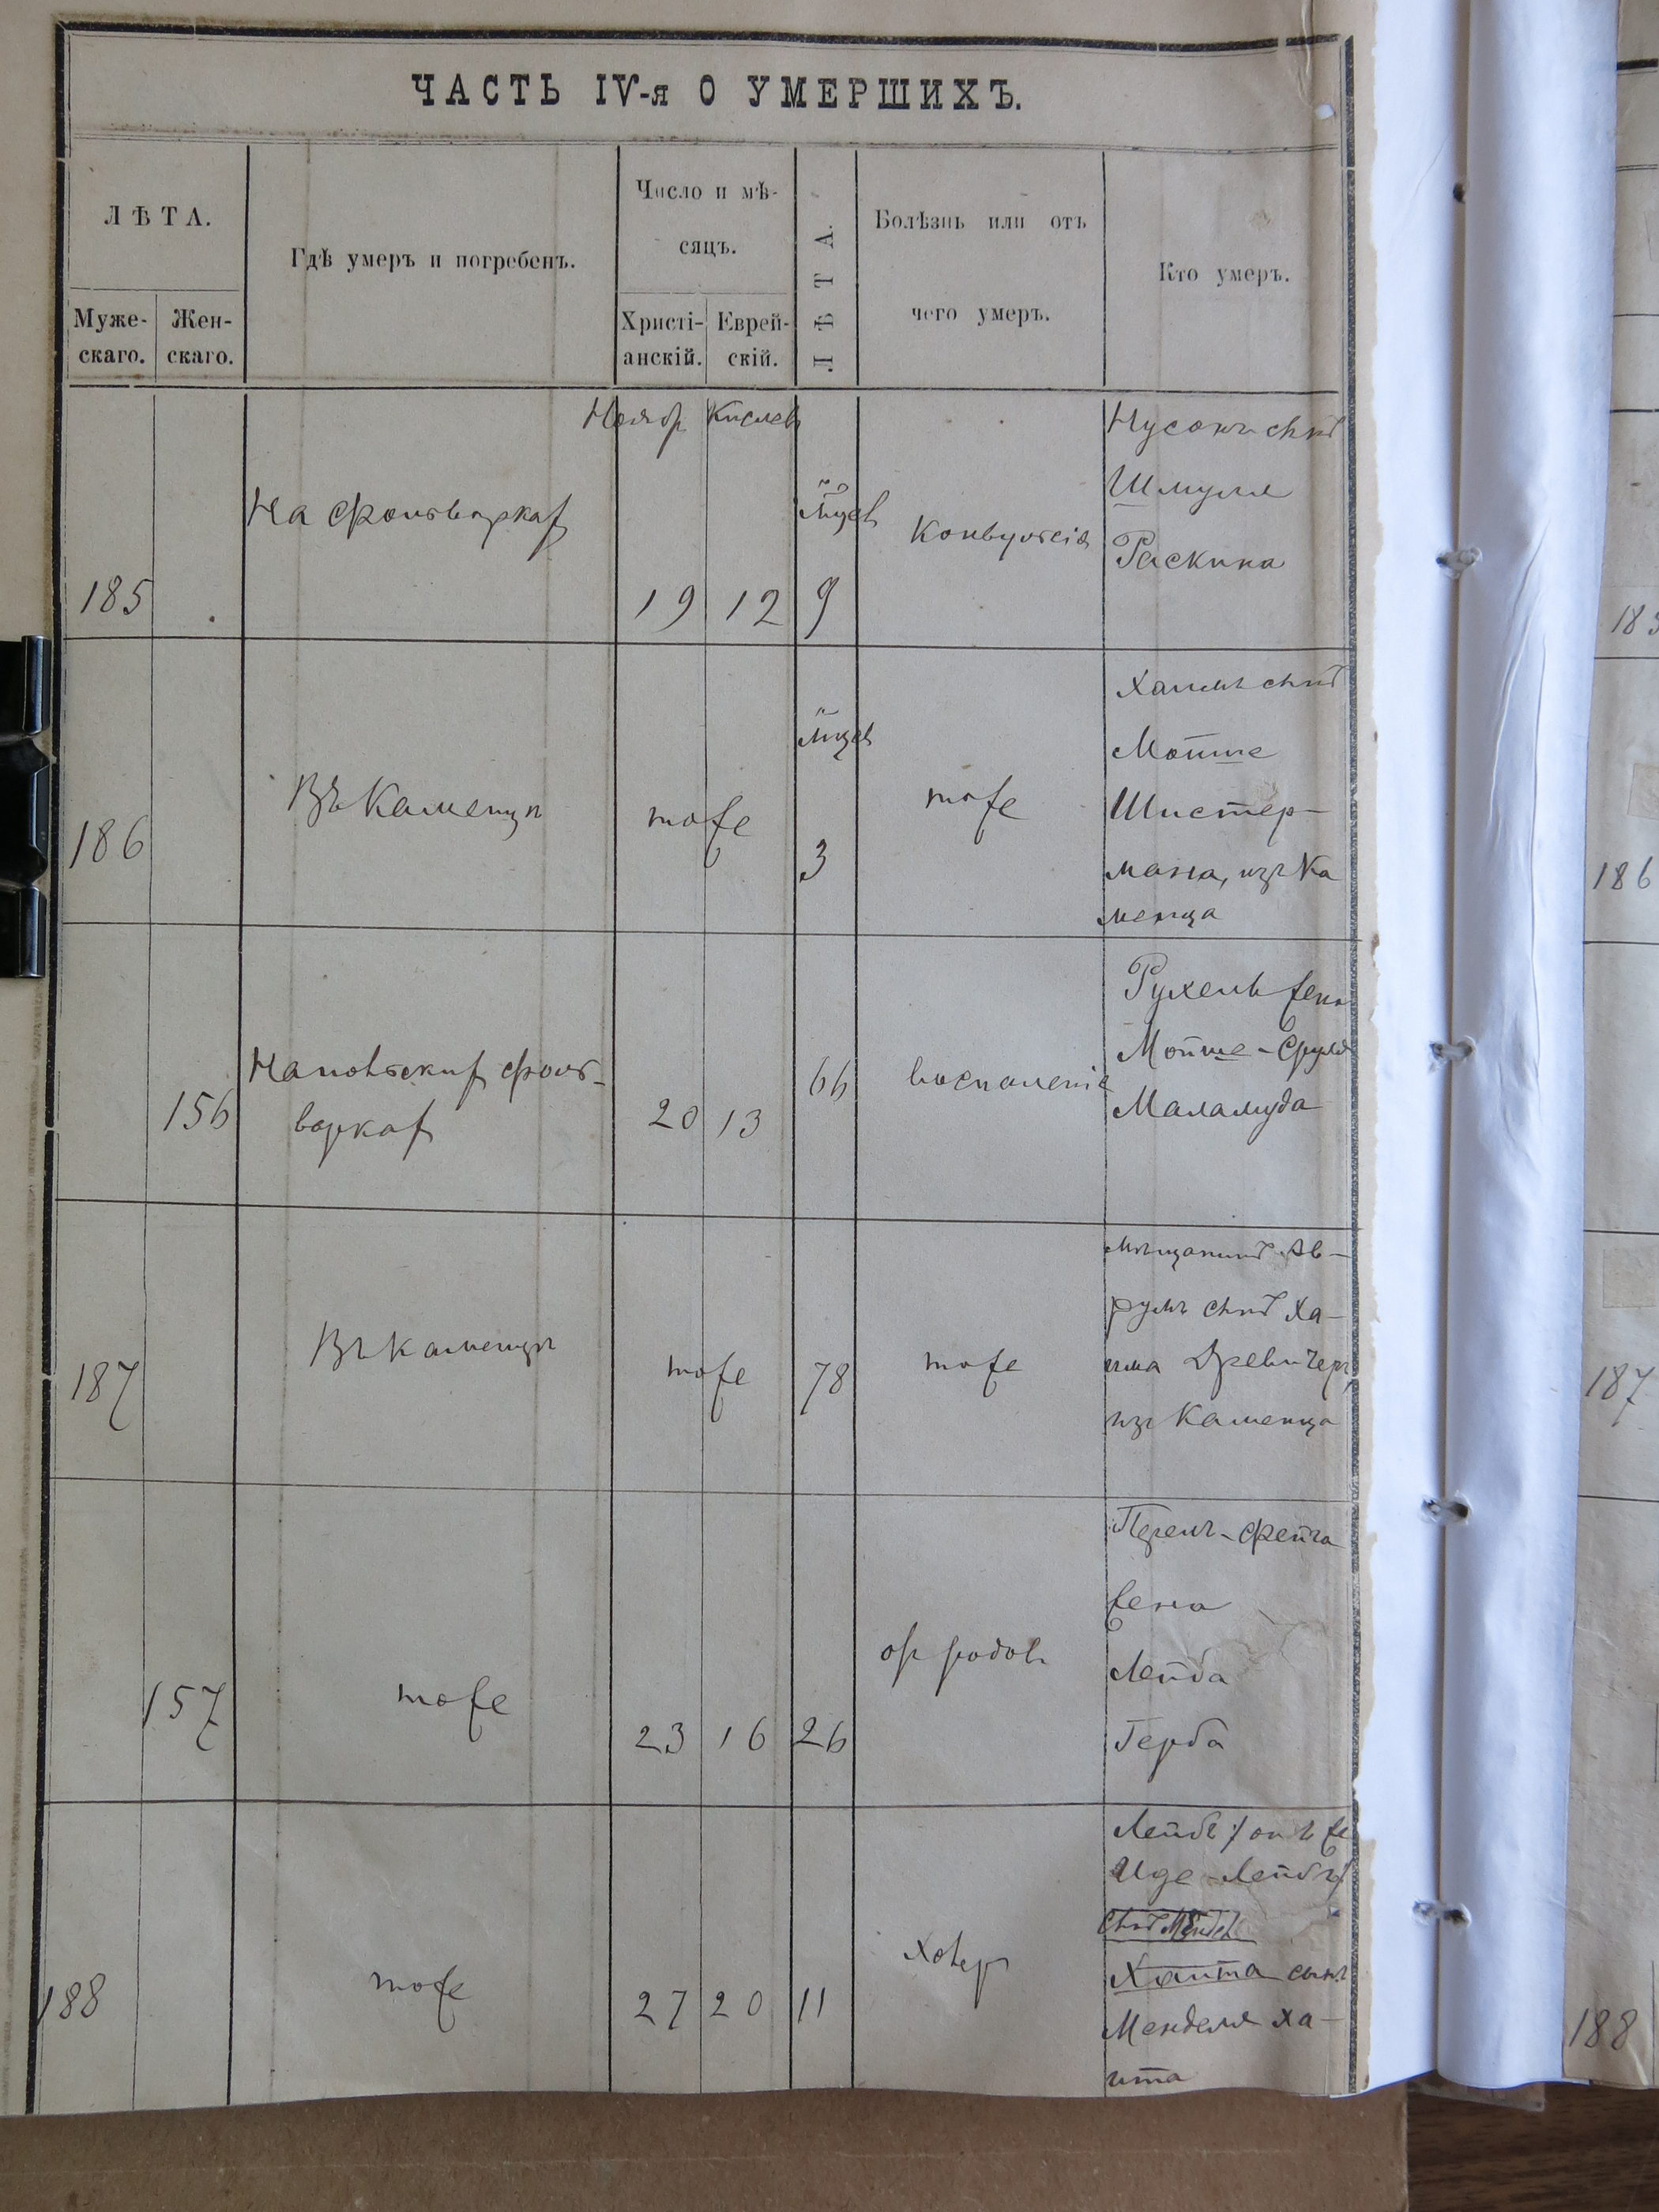 ЧАСТЬ IV-я О УМЕРШИХЪ.
ЛѢТА.
Муже-
скаго.
Жен-
скаго.
Гдѣ умеръ и погребенъ.
Число и мѣ-
сяцъ.
Христі-
анскій.
Еврей-
скій.
ЛѢТА.
Болѣзнь или отъ
чего умеръ.
Кто умеръ.
Ноябр Кислевъ
185
На фольварках
19 12
9
Конвульсія
Нусонъ сынъ
Шмуля
Раскина
186
Въ Каменцѣ
тоже
3
тоже
Хаимъ сынъ
Мойше
Шистер-
мана, изъ Ка
менца
156
фоль-
варках
20 13
66
воспаленіе
Рухель жена
Мойше-Сруля
Маламуда
187
Въ Каменцѣ
тоже
78
тоже
мѣщанинъ Ав-
румъ сынъ Ха-
има
изъ Каменца
157
тоже
23 16
26
от родовъ
Перель-Фейга
жена
Лейба
Герба
188
тоже
27 20
11
Лейбъ / онъ же
Иде-Лейбъ/
сынъ Мендель
Хаита сынъ
Менделя Ха-
ита
183
186
187
188